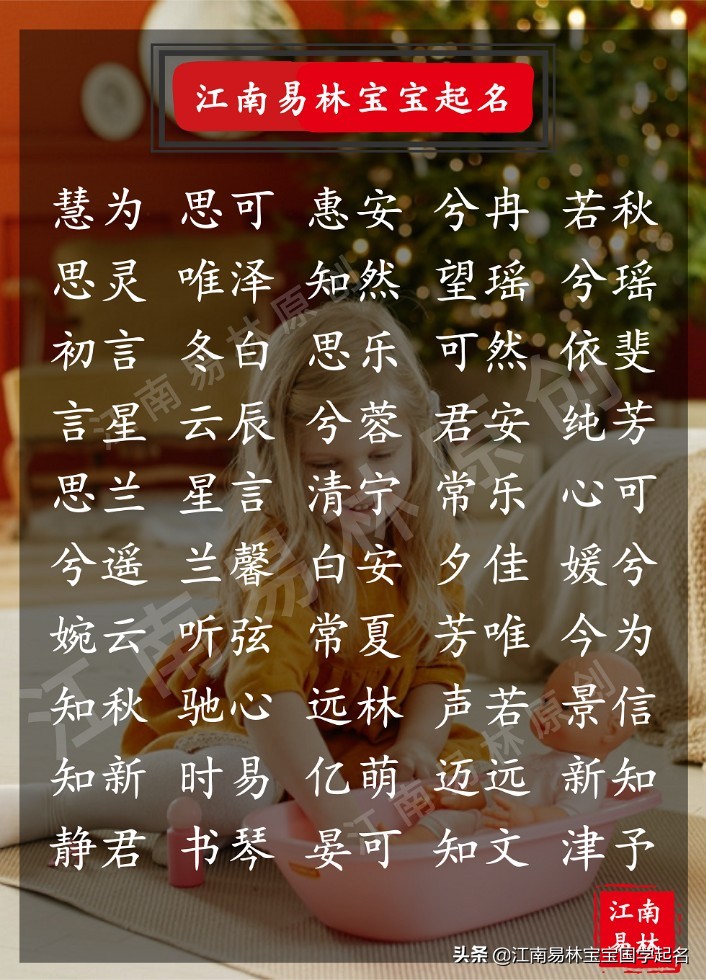 江南易林宝宝起名
慧为 思可 惠安 兮冉 若秋
思灵 唯泽 知然 望瑶 兮瑶
初言 冬白 思乐 可然 依斐
言星 云辰 兮蓉 君安 纯芳
思兰 星言 清宁 常乐 心可
兮遥 兰馨 白安 夕佳 媛兮
婉云 听弦 常夏 芳唯 今为
知秋 驰心 远林 声若 景信
知新 时易 亿萌 迈远 新知
静君 书琴 晏可 知文 津予
江南易林原创
江南易林原创
江南易林原创
江南
易林
头条 @江南易林宝宝国学起名